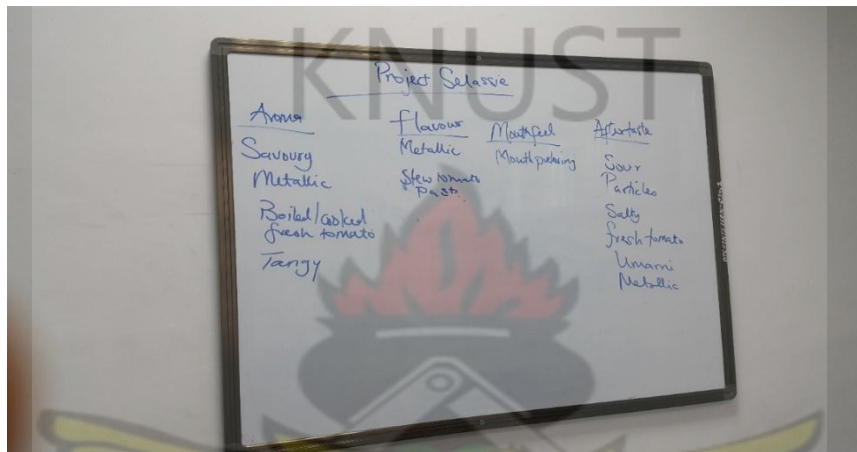 KNUST
Project Selassie
Aroma
Savoury
Metallic
Boiled/cooked
fresh tomato
Tangy
Flavour
Metallic
Stew tomato
Paste
Mouthfeel
Mouthpuckering
Aftertaste
Sour
Particles
Salty
fresh tomato
Umami
Metallic